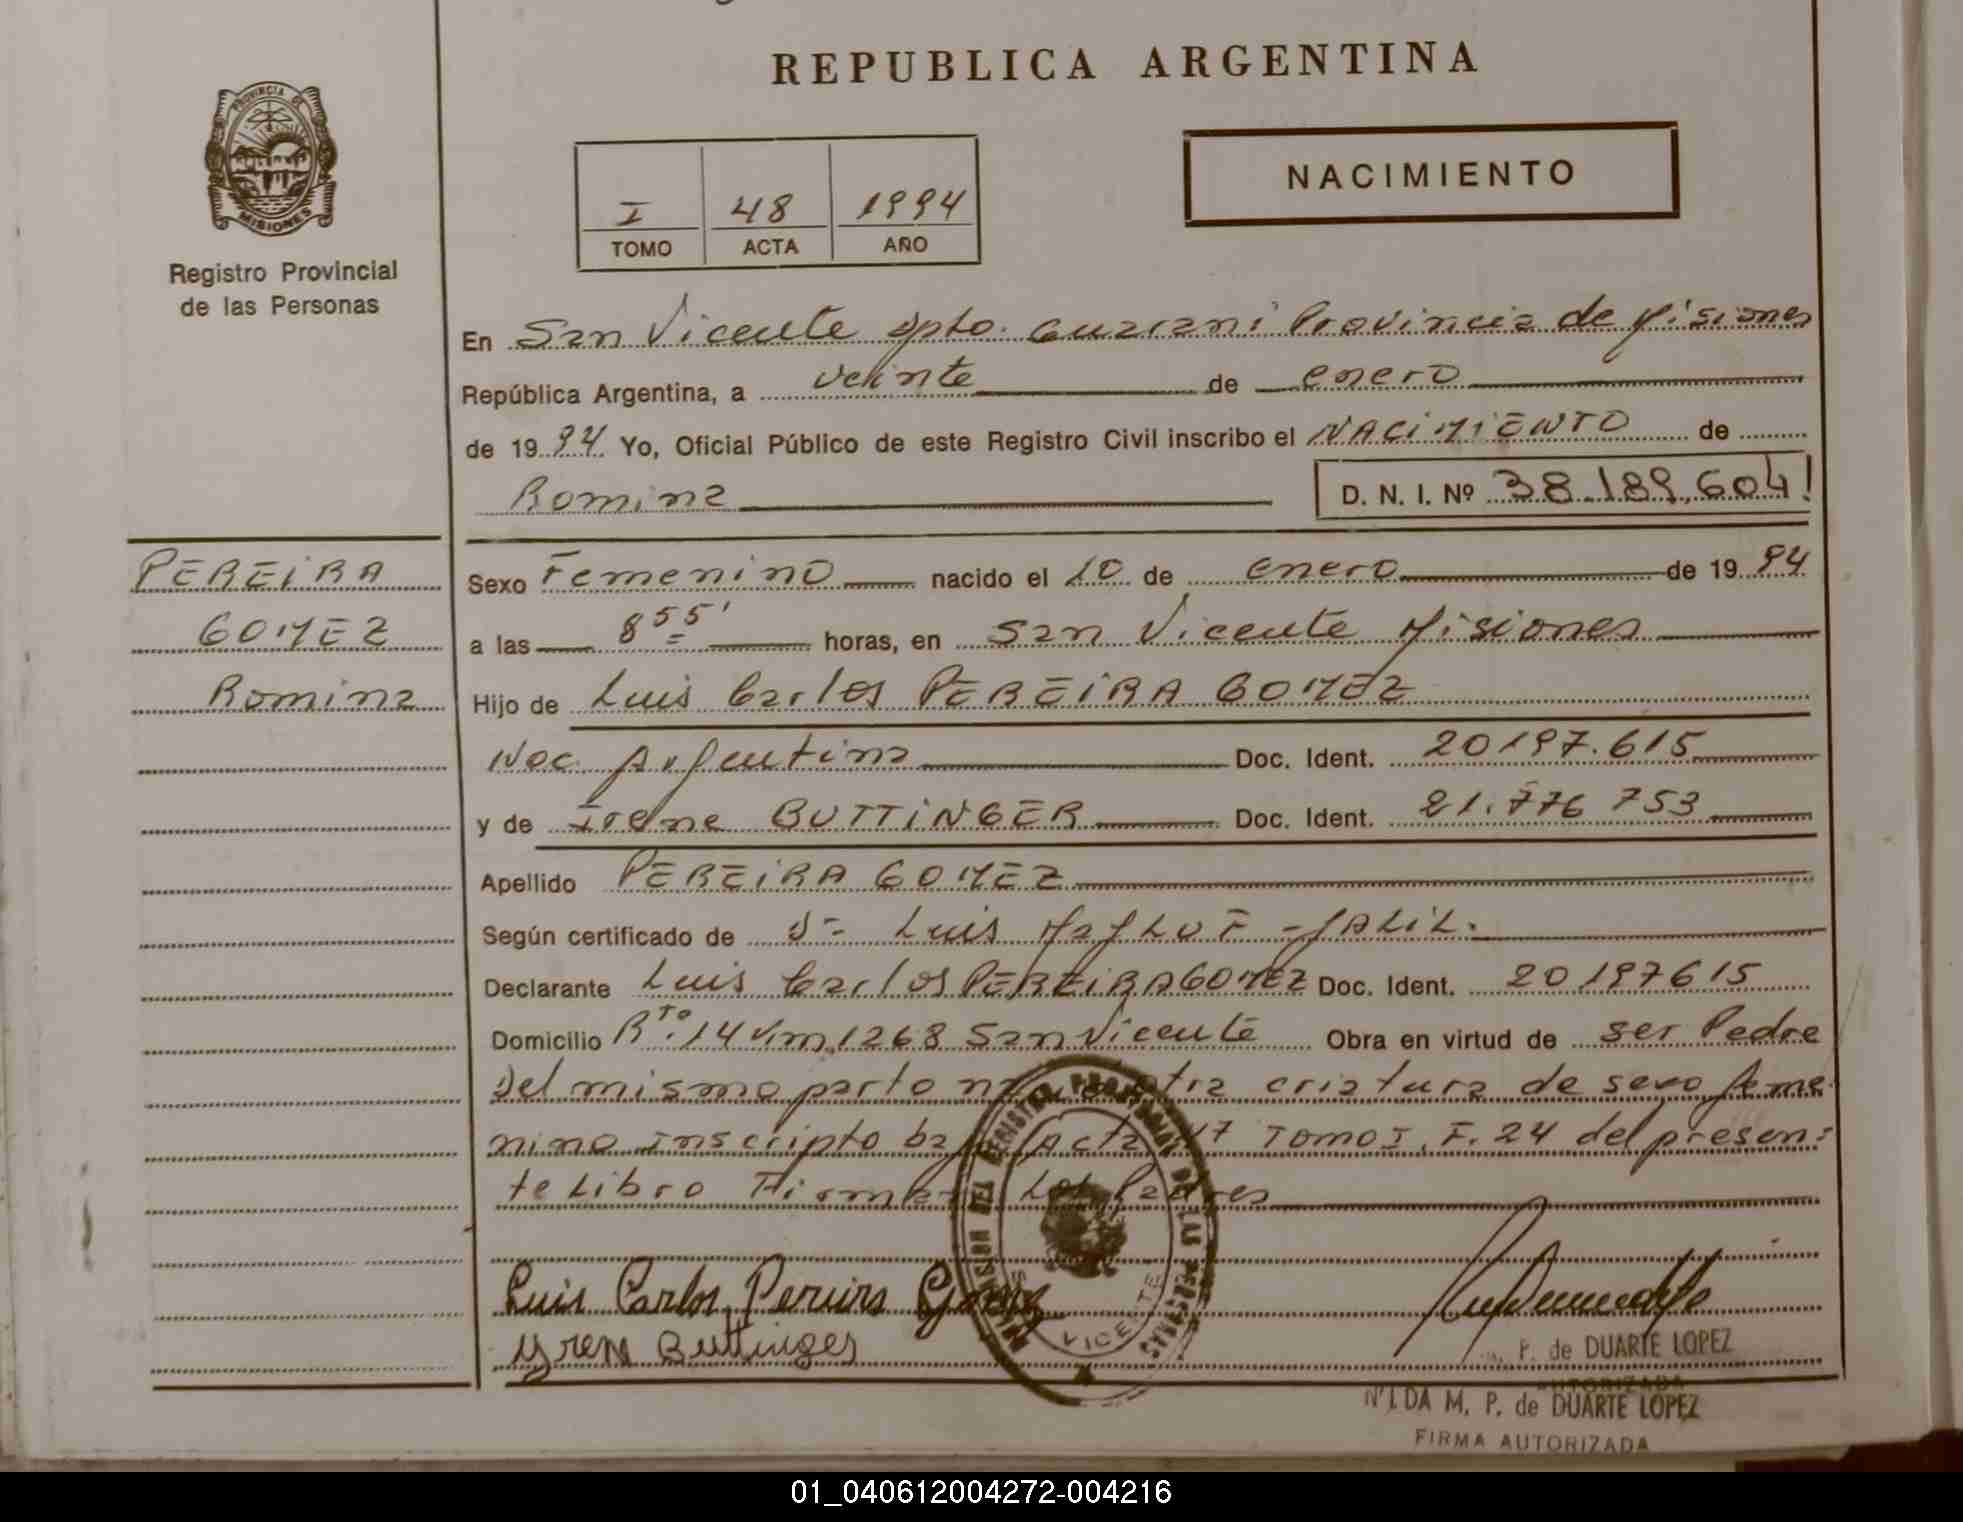 REPUBLICA ARGENTINA
PROVINCIA DE
MISIONES
Registro Provincial
de las Personas
I 48 1994
TOMO ACTA AÑO
NACIMIENTO
En San Vicente Dpto. Guarani Provincia de Misiones
República Argentina, a veinte de enero
de 1994 Yo, Oficial Público de este Registro Civil inscribo el NACIMIENTO de
Romina D. N. I. Nº 38.189.604
PEREIRA
GOMEZ
Romina
Sexo Femenino nacido el 10 de enero de 1994
a las 8 55' horas, en San Vicente Misiones
Hijo de Luis Carlos PEREIRA GOMEZ
Nac Argentina Doc. Ident. 20197.615
y de Irene BUTTINGER Doc. Ident. 21.776 753
Apellido PEREIRA GOMEZ
Según certificado de Luis JALIL.
Declarante Luis Carlos PEREIRA GOMEZ Doc. Ident. 20197615
Domicilio 14 Km 1268 San Vicente Obra en virtud de ser Padre
Del mismo parto otra criatura de sexo feme
nino inscripto bajo Acta 47 Tomo I, F. 24 del presen=
te Libro Firman Los Padres
Luis Carlos Pereira Gomez
Yrene Buttinger
VICENTE
P. de DUARTE LOPEZ
AUTORIZADA
NILDA M. P. de DUARTE LOPEZ
FIRMA AUTORIZADA
01_040612004272-004216